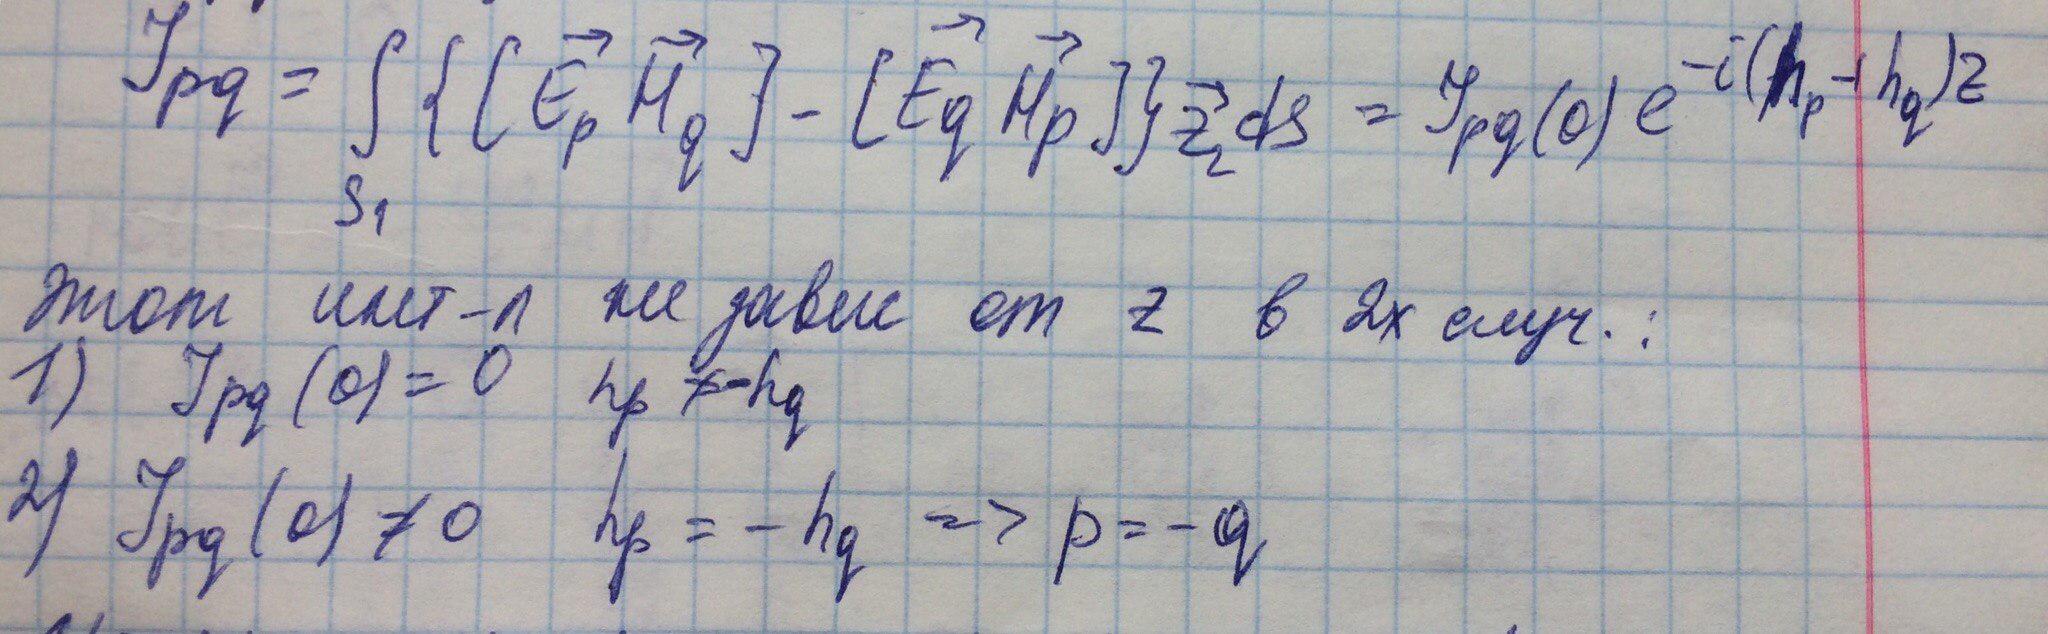 J_pq = ∫_{S_1} {[E⃗_p H⃗_q] - [E⃗_q H⃗_p]} z⃗_2 ds = J_pq(0) e^{-i(h_p+h_q)z}
Этот инт-л не завис от z в 2х случ. :
1) J_pq(0) = 0 h_p ≠ -h_q
2) J_pq(0) ≠ 0 h_p = -h_q => p = -q